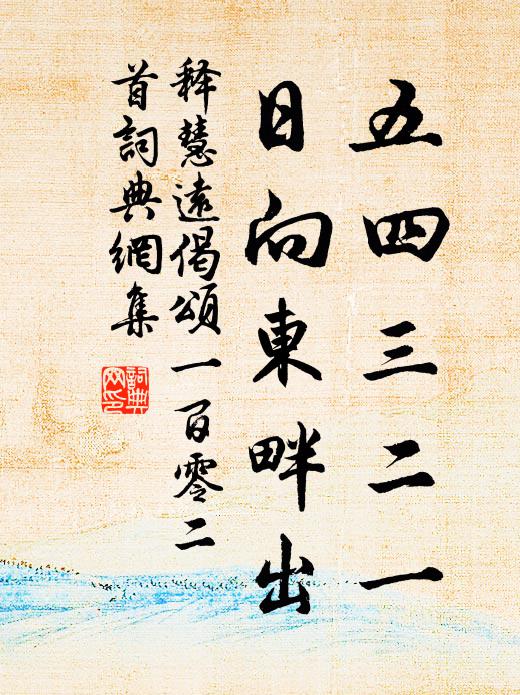 五四三二一
日向東畔出
释慧遠偈頌一百零二
首詞典網集
詞典
网印